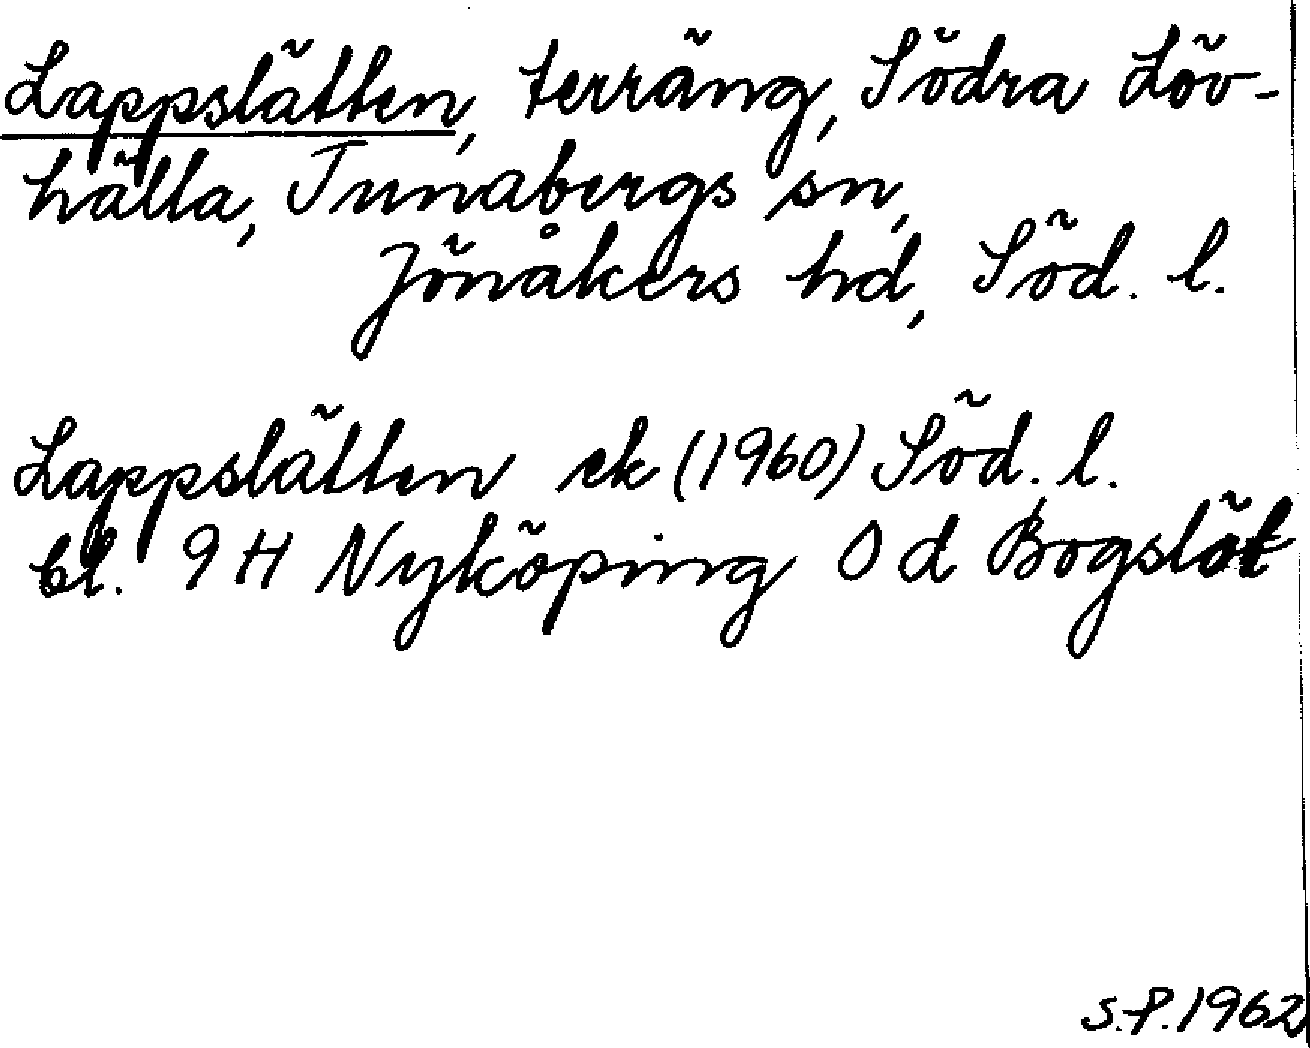 Lappslätten, terräng, Södra Löv-
hälla, Tunabergs sn,
Jönåkers hd, Söd. l.
Lappslätten ek (1960) Söd. l.
bl. 9 H Nyköping 0 d Bogslöt
S.P. 1962